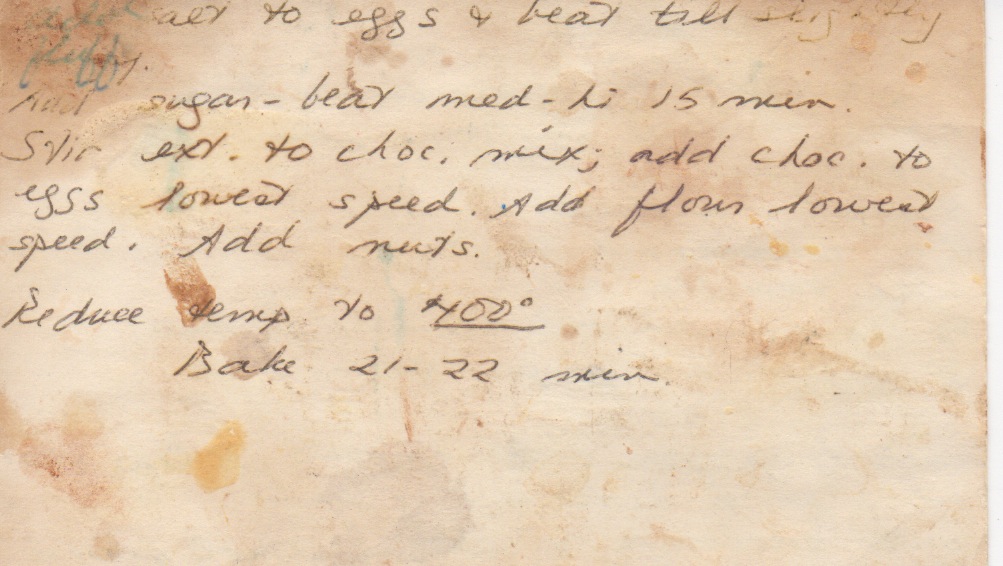 salt to eggs & beat till slightly
fluffy.
Add sugar - beat med-hi 15 min.
Stir ext. to choc. mix; add choc. to
eggs lowest speed. Add flour lowest
speed. Add nuts.
Reduce temp to 400°
Bake 21-22 min.